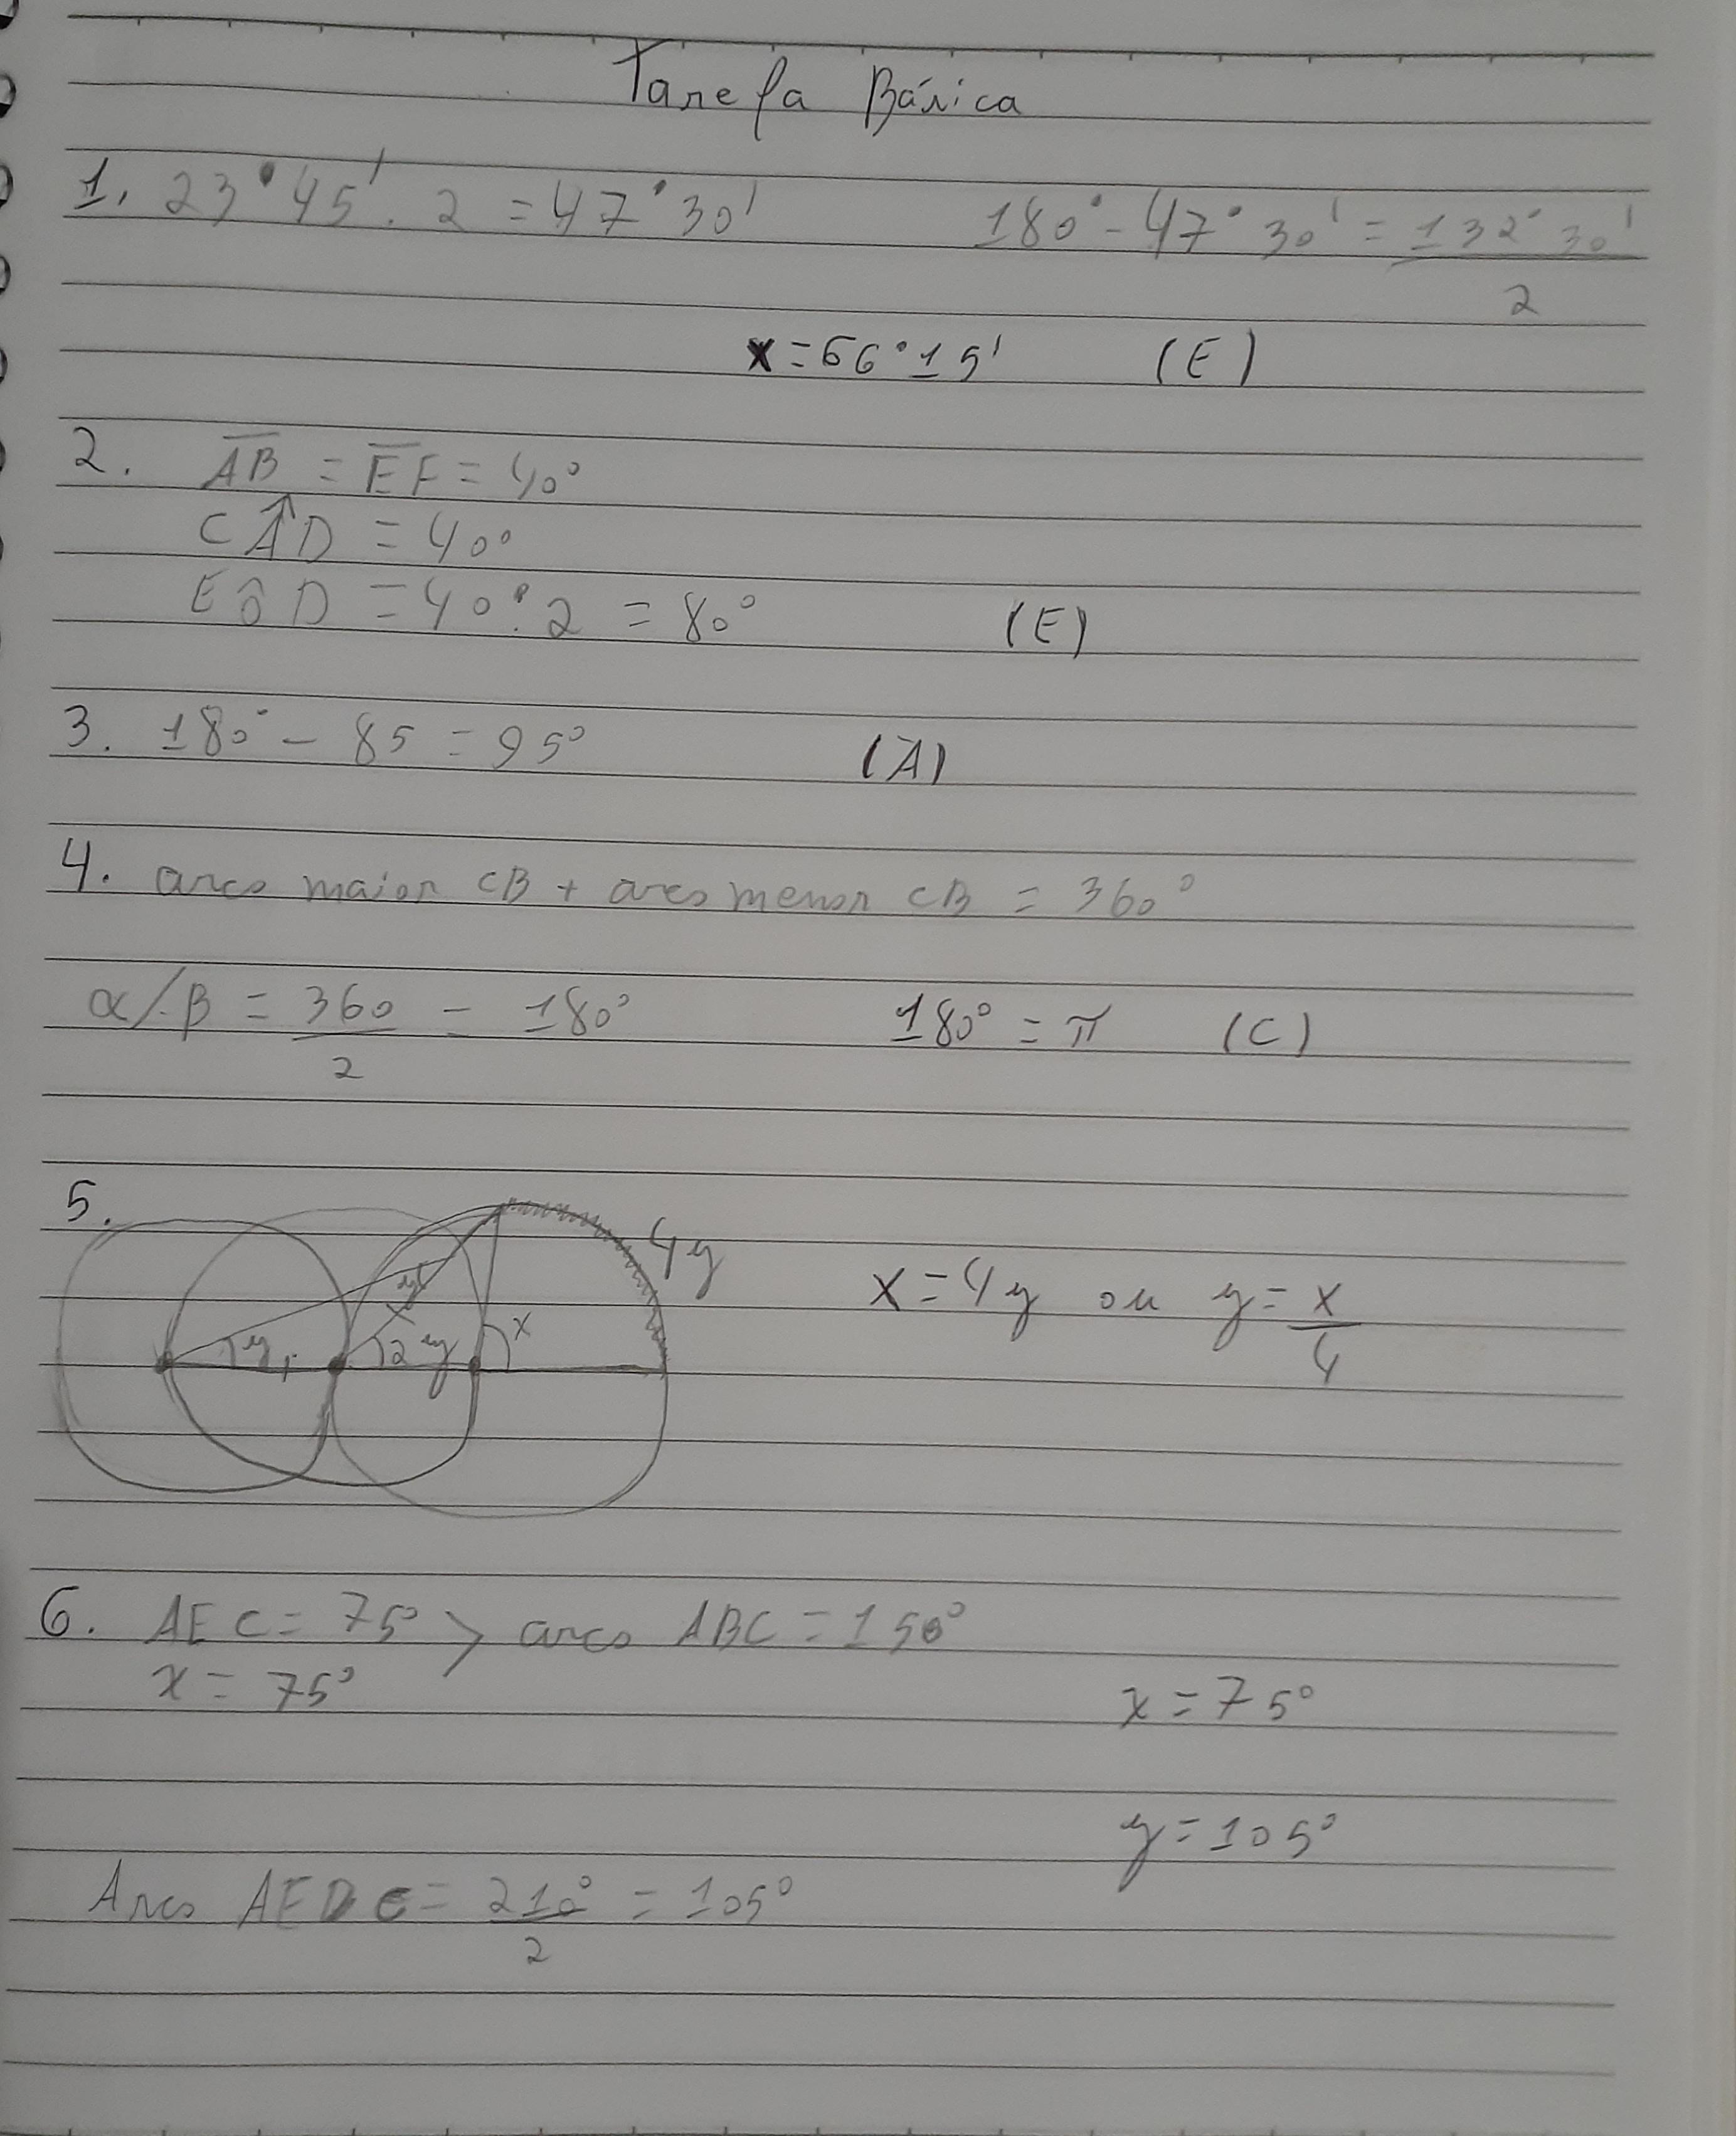 Tarefa Básica
1. 23°45'. 2 = 47°30' 180° - 47°30' = 132°30'
2
x = 66°15' (E)
2. AB = EF = 40°
CÂD = 40°
EÔD = 40°. 2 = 80° (E)
3. 180° - 85 = 95° (A)
4. arco maior CB + arco menor CB = 360°
α/.β = 360 = 180° 180° = π (C)
2
5.
4y
y
x = 4y ou y = x
4
y 2y x
6. AEC = 75° > arco ABC = 150°
x = 75°
x = 75°
y = 105°
Arco AEDC = 210° = 105°
2